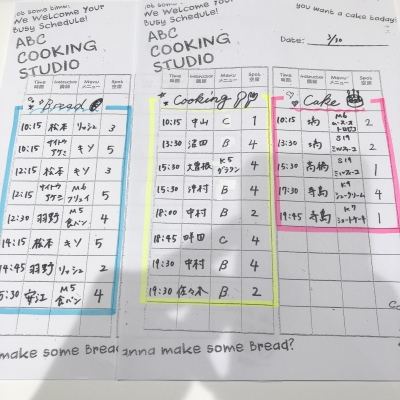 Got some time?
We Welcome Your
Busy Schedule!
ABC
COOKING
STUDIO
Time
時間
Instructor
講師
Menu
メニュー
Spot
空席
Bread
10:15 松本 リッシュ 3
10:15 サイトウアケミ キソ 5
12:15 松本 キソ 3
12:15 サイトウアケミ M6 5
12:30 羽野 M5 食パン 4
14:15 松本 キソ 5
14:45 羽野 リッシュ 2
15:30 安江 M5 食パン 4
make some Bread
Got some time?
We Welcome Your
Busy Schedule!
ABC
COOKING
STUDIO
Time
時間
Instructor
講師
Menu
メニュー
Spot
空席
Cooking
10:15 中山 C 1
13:30 沼田 B 4
15:30 大曽根 K5 グラタン 4
15:30 津村 B 4
18:00 中村 B 2
18:45 C 4
19:30 中村 B 4
19:30 佐々木 B 2
anna make some Bread?
you want a cake today?
Date: 3/30
Time
時間
Instructor
講師
Menu
メニュー
Spot
空席
Cake
10:15 M6 2
13:30 S19 ミルフィーユ 2
15:30 高橋 S19 ミルフィーユ 1
17:30 寺島 K9 シュークリーム 4
19:45 寺島 K7 ショートケーキ 1